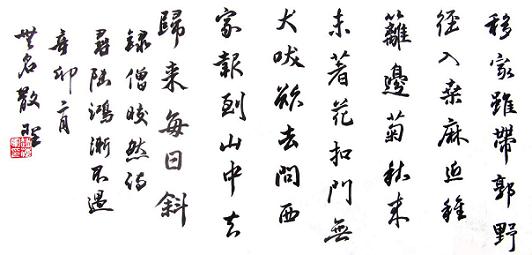 移家雖帶郭野
径入桑麻近種
籬邊菊秋来
未著花扣門無
犬吠欲去問西
家報到山中去
歸来每日斜
録僧皎然詩
尋陸鴻漸不遇
辛卯二月
無名散